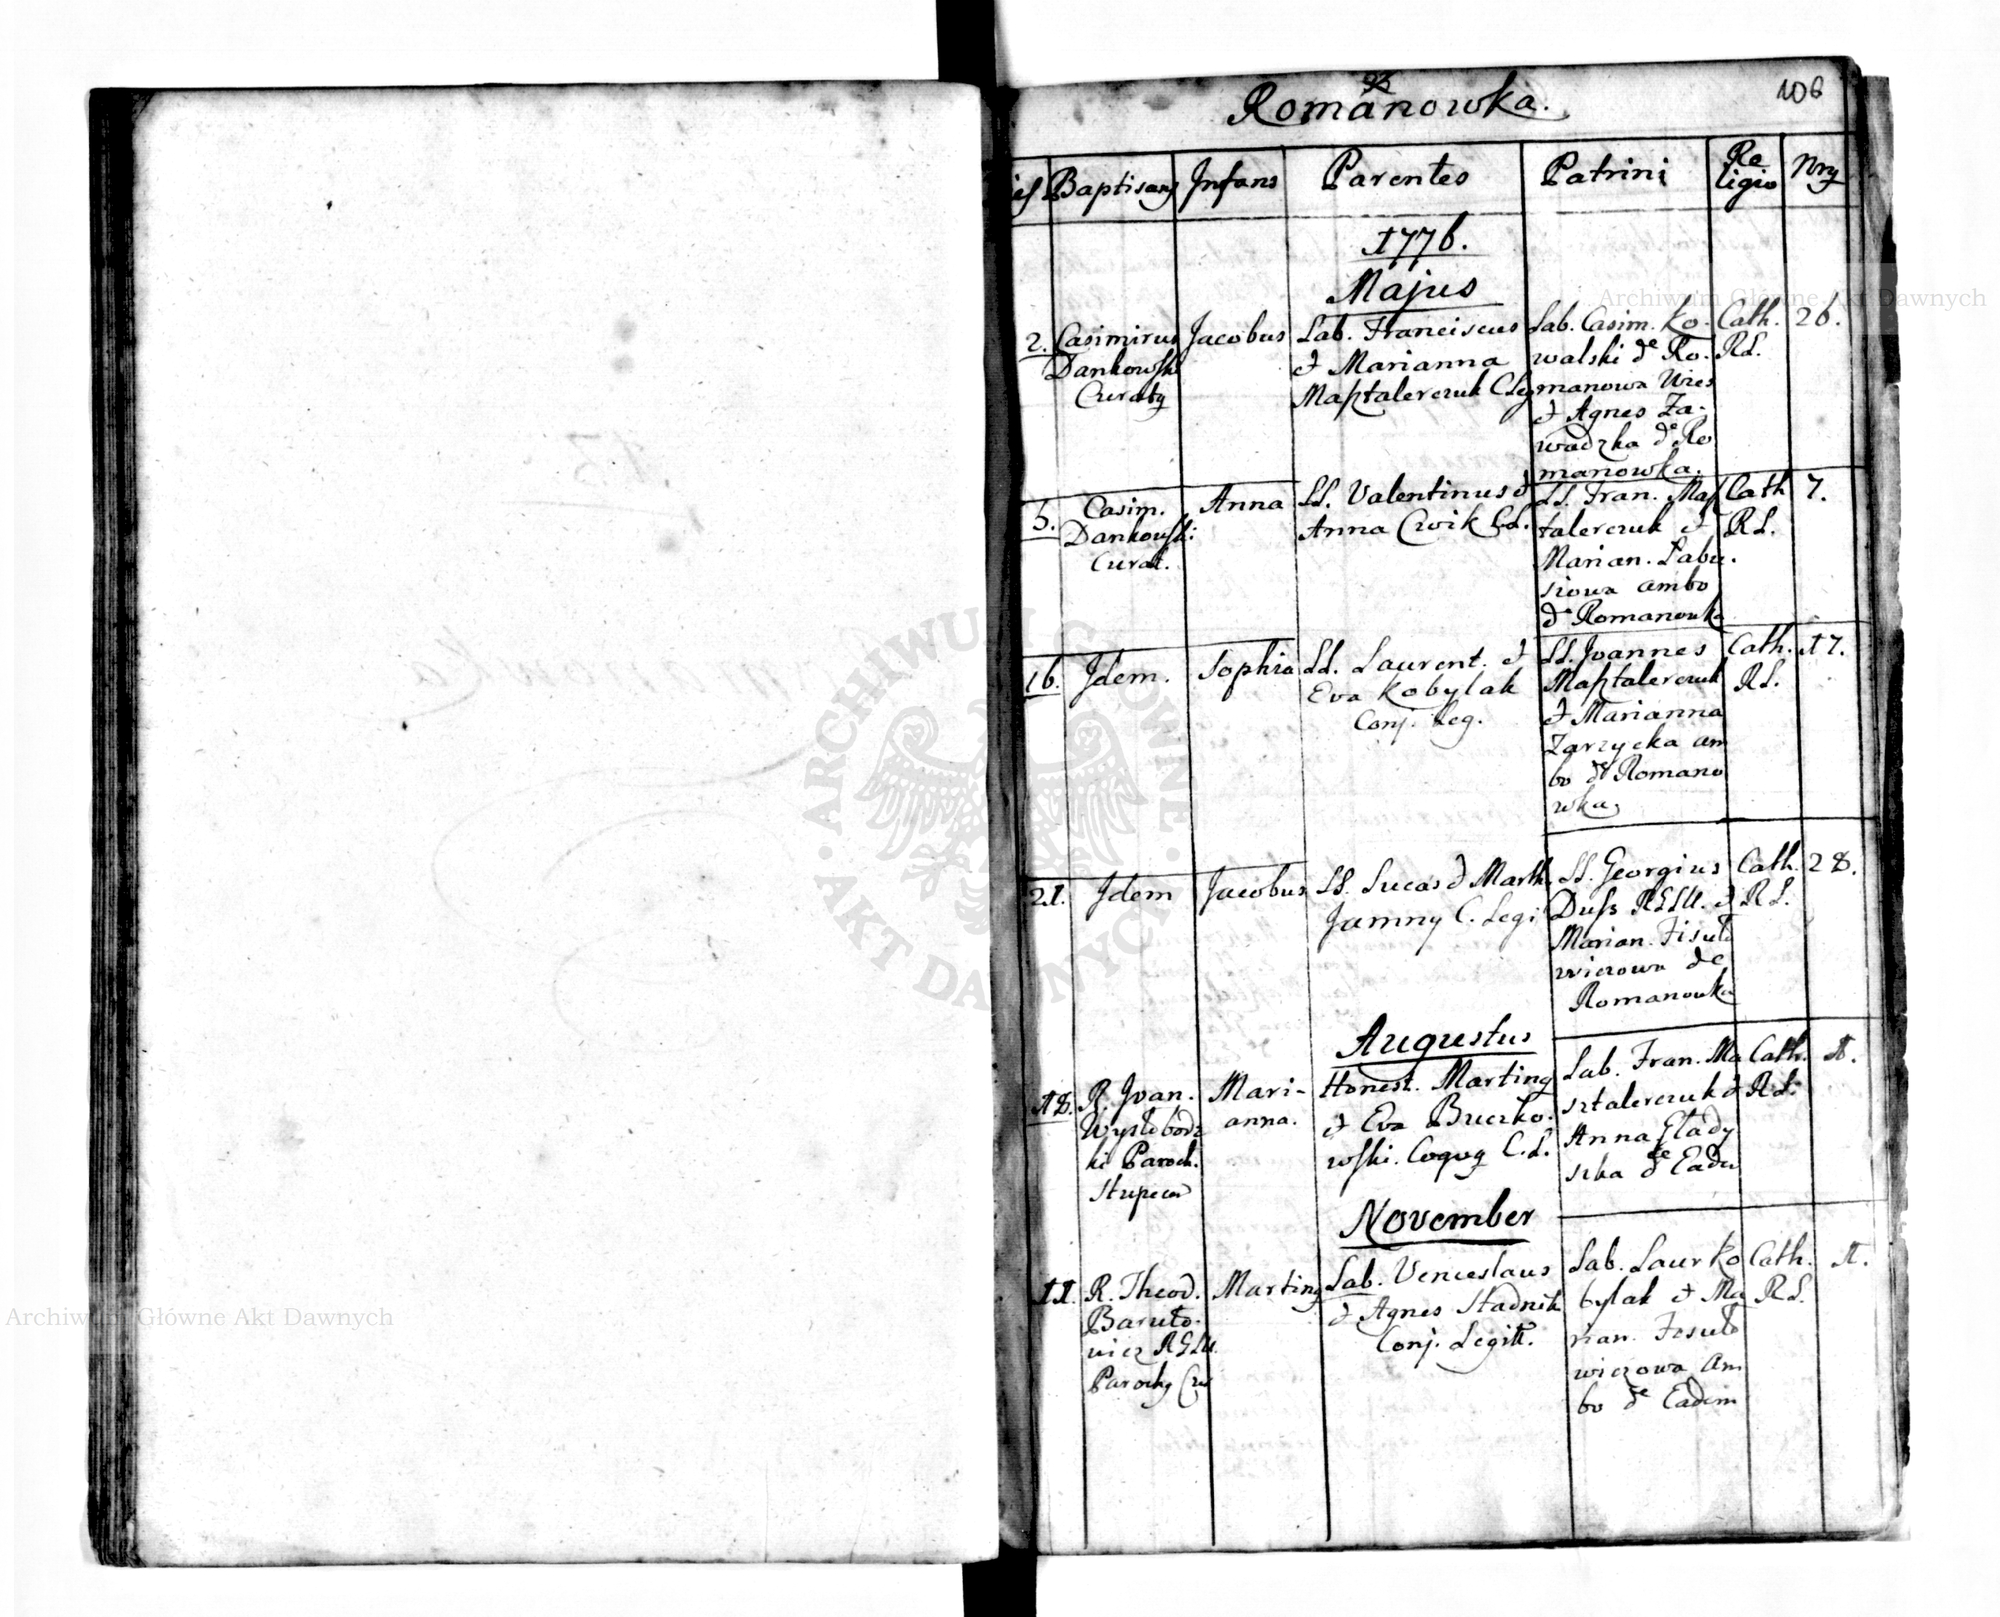 Romanowka.
106
ies
Baptisans
Infans
Parentes
Patrini
Re
ligio
Nrus
1776.
Majus
2.
Casimirus
Dankowski
Curatus
Jacobus
Lab. Franciscus
et Marianna
Masztalerczuk C Leg
Lab. Casim. Ko-
walski de Ro-
manowa Wies
et Agnes Za-
wadzka de Ro
manowka.
Cath.
RL.
26.
5.
Casim.
Dankowski
Curat.
Anna
LL. Valentinus et
Anna Cwik C.L.
LL. Fran. Masz
talerczuk et
Marian. Labu.
siowa ambo
de Romanowka
Cath
RL.
7.
16.
Idem.
Sophia
LL. Laurent. et
Eva Kobylak
Conj. Leg.
LL. Joannes
Masztalerczuk
et Marianna
Zarzycka am
bo de Romano
wka
Cath.
RL.
17.
21.
Idem
Jacobus
LL. Lucas et Marth.
Jamny C. Legi
LL. Georgius
Duss RGLU. et
Marian. Fisuto
wiczowa de
Romanowka
Cath.
RL.
28.
Augustus
18.
R. Joan.
Wysłobodz
ki Paroch.
Stupecen
Mari-
anna.
Honest. Martinus
et Eva Buczko-
wski. Coquus C.L.
Lab. Fran. Ma
sztalerczuk et
Anna Glady
szka de Eadem
Cath.
RL.
1.
November
11.
R. Theod.
Baruto-
wicz RGLU
Parochus
Martinus
Lab. Venceslaus
et Agnes Stadnik
Conj. Legitt.
Lab. Laur Ko
bylak et Ma
rian. Fisuto
wiczowa am
bo de Eadem
Cath.
RL.
1.
ARCHIWUM GŁÓWNE AKT DAWNYCH
Archiwum Główne Akt Dawnych
Archiwum Główne Akt Dawnych